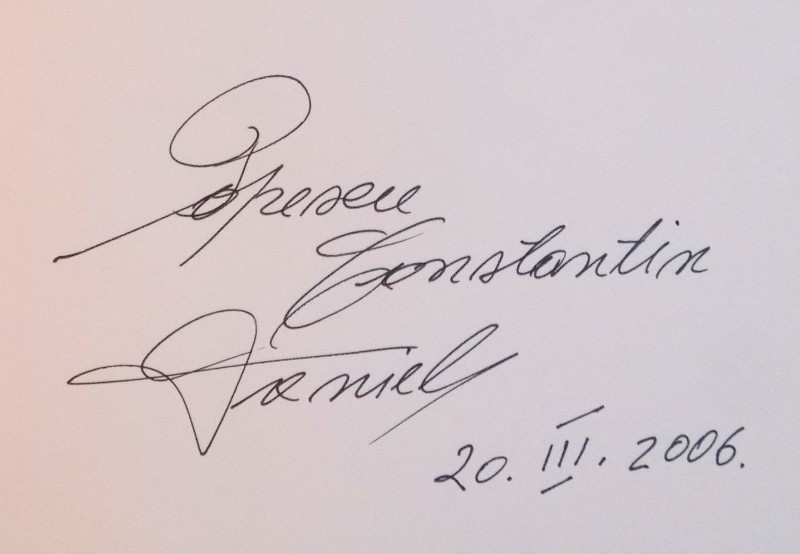 Popescu
Constantin
Daniel
20. III. 2006.